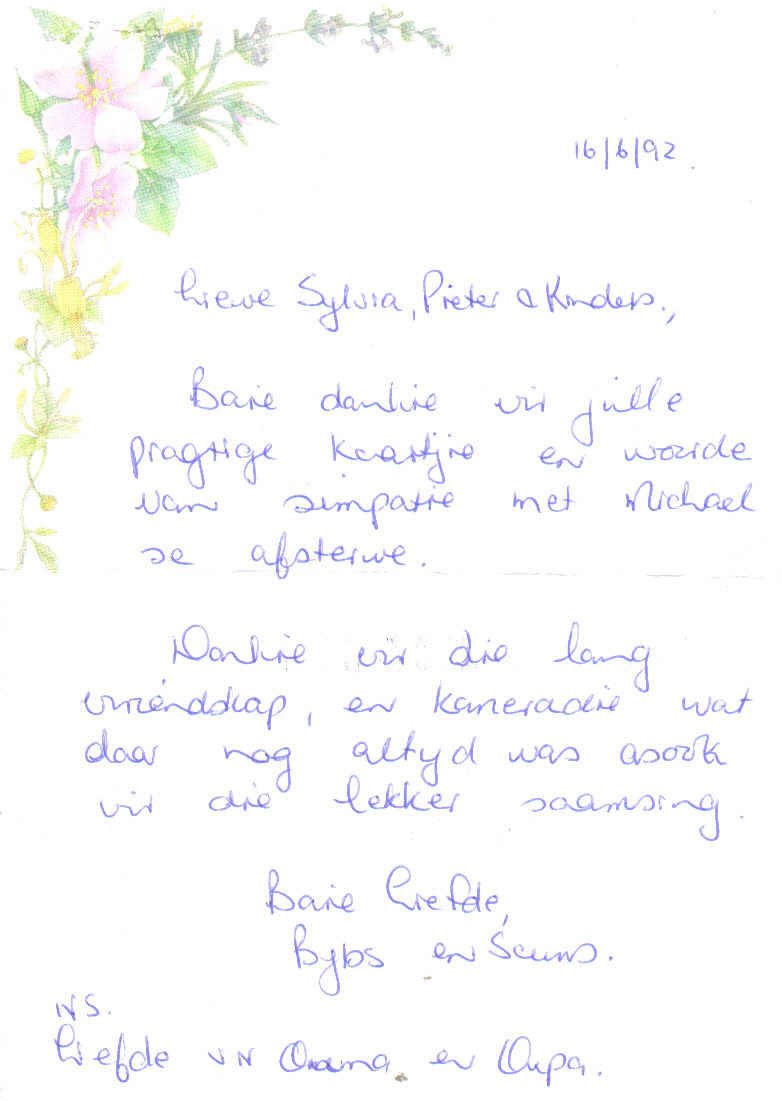 16/6/92.
Liewe Sylvia, Pieter & Kinders.,
Baie dankie vir julle
pragtige kaartjie en woorde
van simpatie met Michael
se afsterwe.
Dankie vir die lang
vriendskap, en kameradie wat
daar nog altyd was asook
vir die lekker saamsing.
Baie liefde,
Bybs en Seuns.
NS.
Liefde vir Ouma en Oupa.